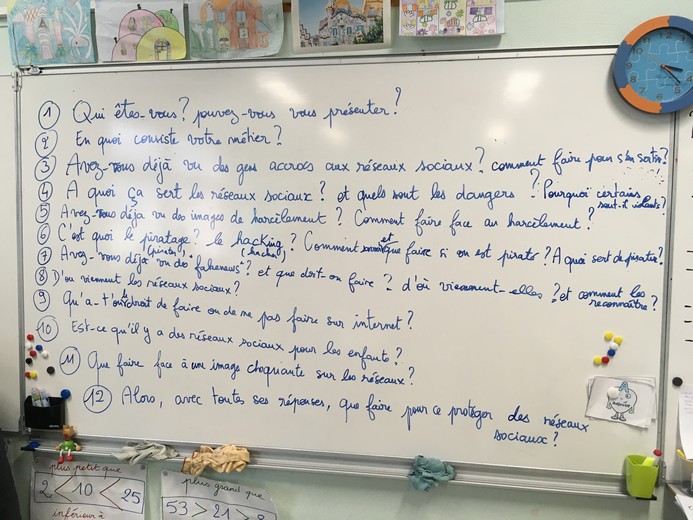 1 Qui êtes-vous? pouvez-vous vous présenter?
2 En quoi consiste votre métier?
3 Avez-vous déjà vu des gens accrocs aux réseaux sociaux? comment faire pour s'en sortir?
4 A quoi ça sert les réseaux sociaux? et quels sont les dangers? Pourquoi certains
sont-il violents?
5 Avez-vous déja vu des images de harcèlement? Comment faire face au harcèlement?
6 C'est quoi le piratage? le hacking? Comment et que faire si on est piraté? A quoi sert de pirater?
(pirater) (hacker)
7 Avez-vous déjà vu des "fakenews"? et que doit-on faire? d'où viennent-elles? et comment les
reconnaître?
8 D'où viennent les réseaux sociaux?
9 Qu'a-t'on le droit de faire ou de ne pas faire sur internet?
10 Est-ce qu'il y a des réseaux sociaux pour les enfants?
11 Que faire face à une image choquante sur les réseaux?
12 Alors, avec toutes ses réponses, que faire pour ce protéger des réseaux
sociaux?
plus petit que
2 < 10 < 25
inférieur à
plus grand que
53 > 21 > 8